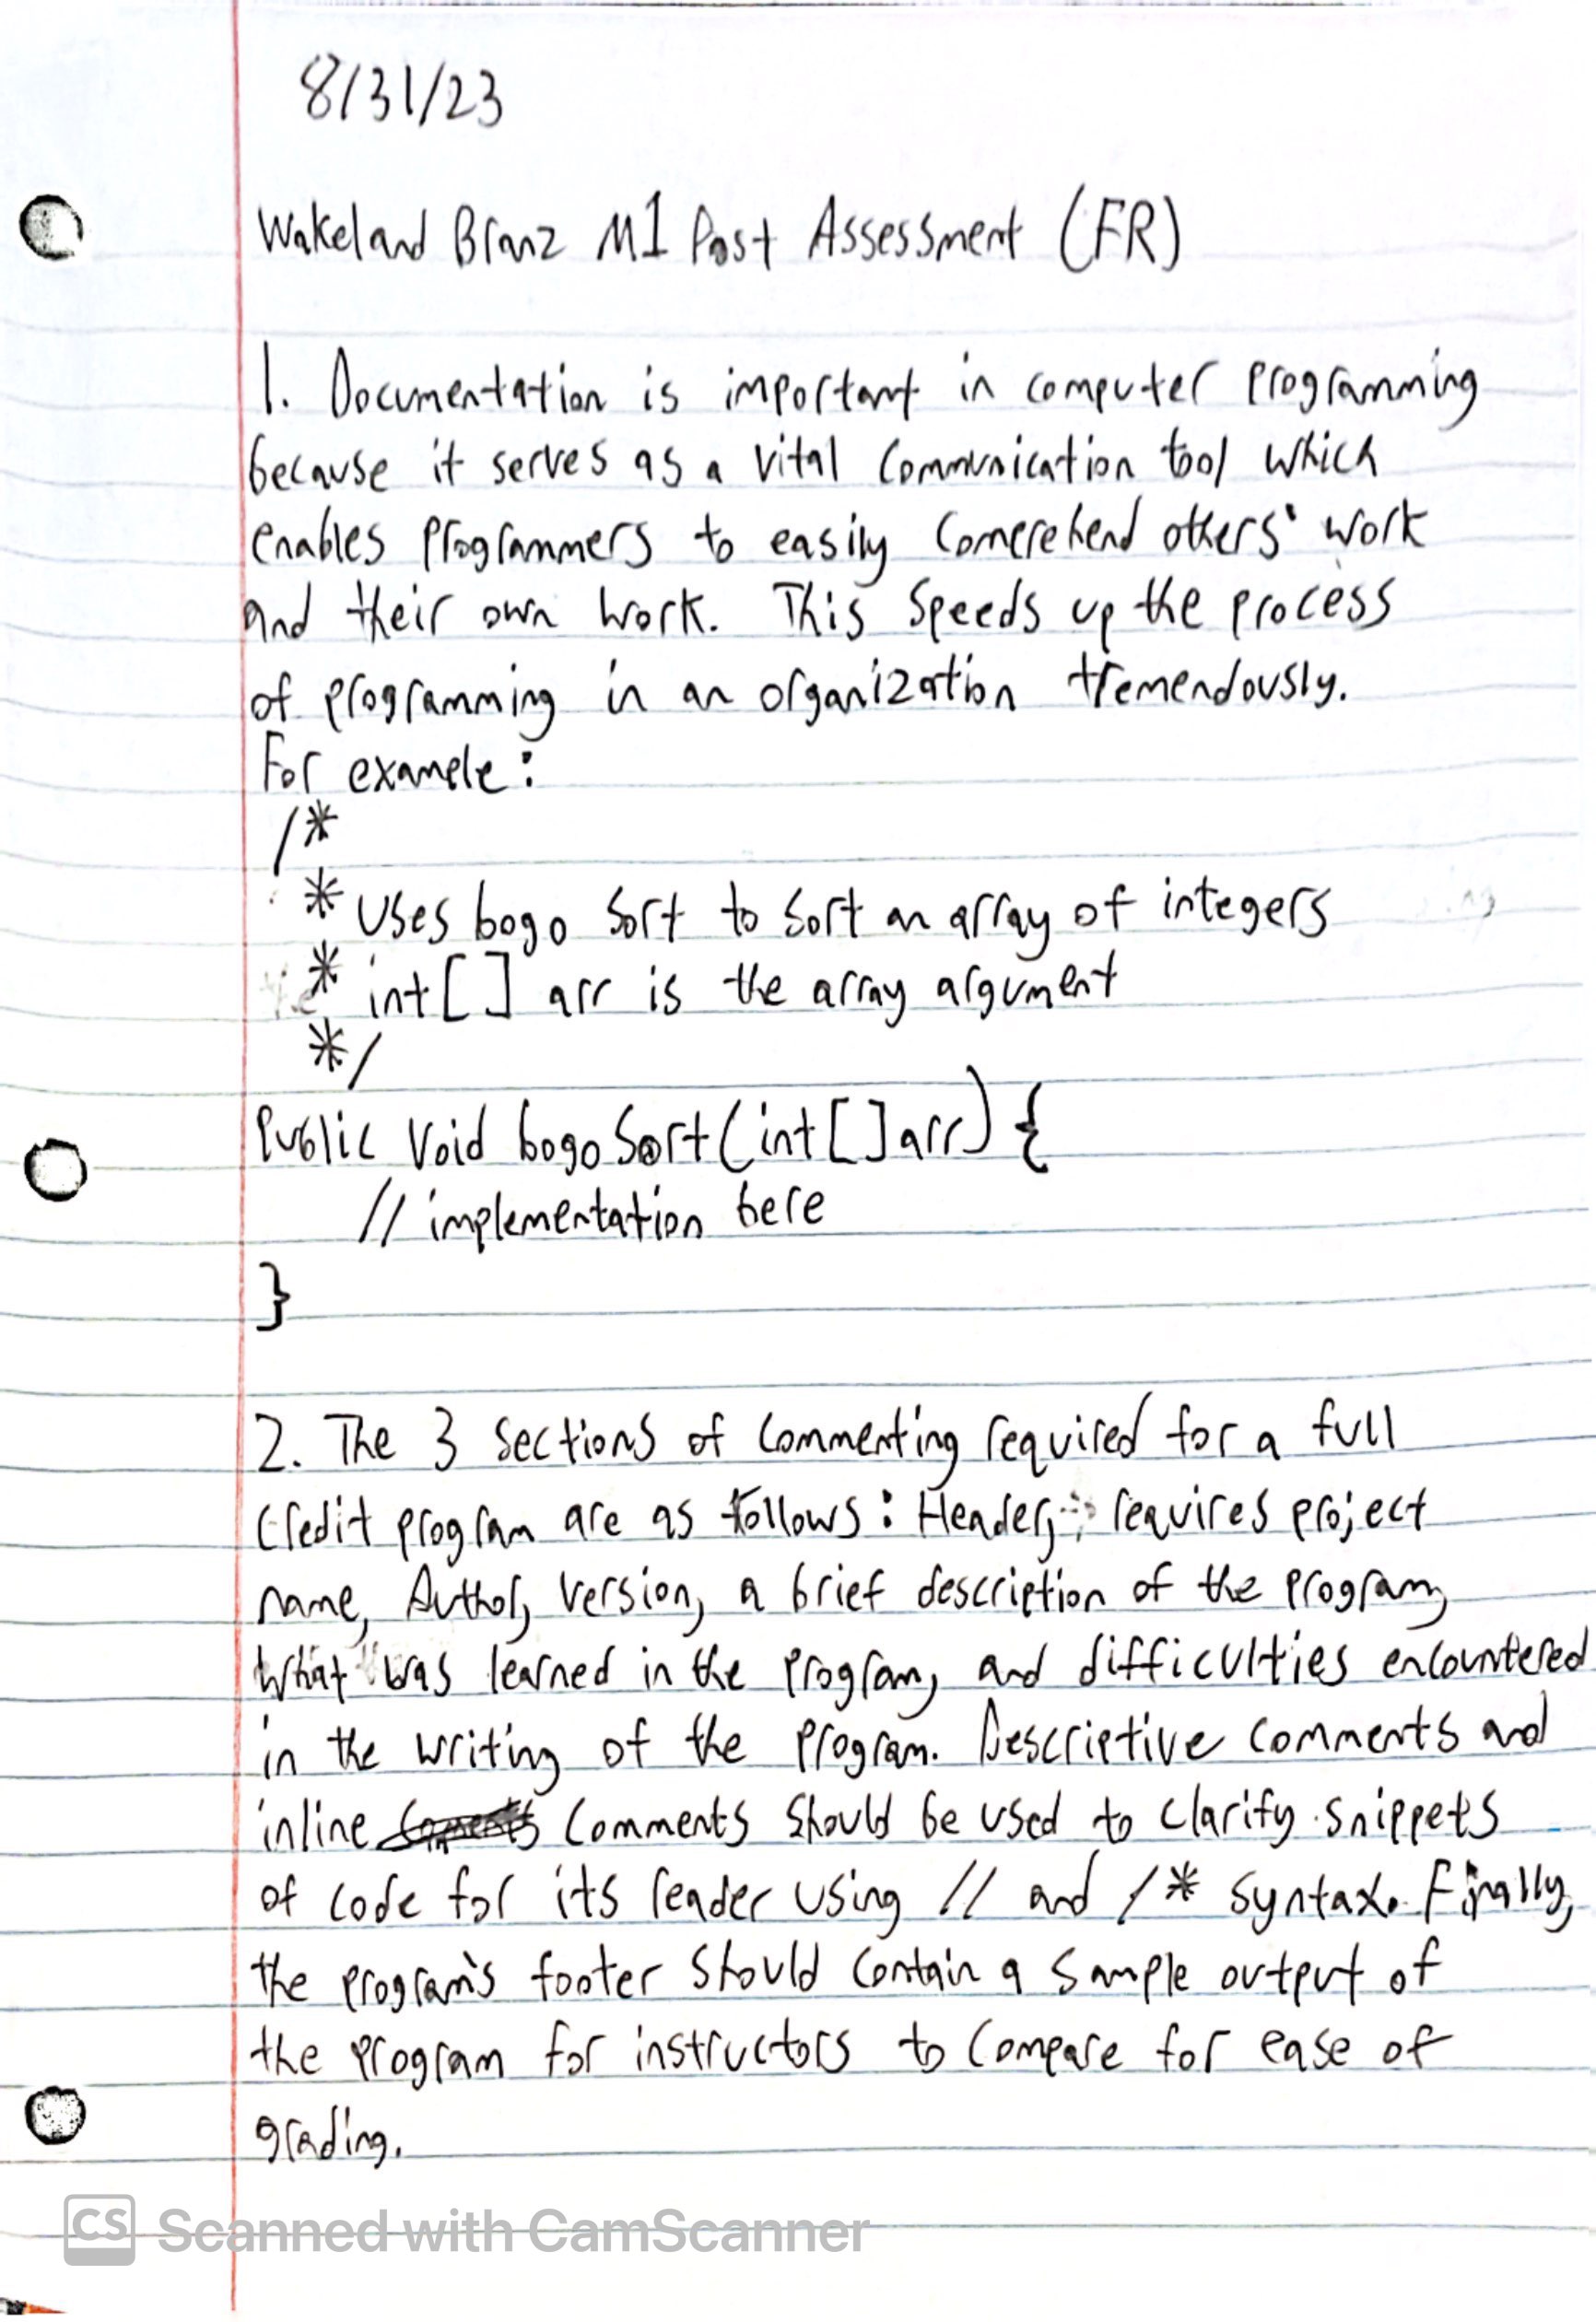 8/31/23
Wakeland Branz M1 Post Assessment (FR)
1. Documentation is important in computer programming
because it serves as a vital communication tool which
enables programmers to easily comprehend others' work
and their own work. This speeds up the process
of programming in an organization tremendously.
For example:
/*
* Uses bogo sort to sort an array of integers
* int[] arr is the array argument
*/
Public void bogoSort(int[] arr) {
// implementation here
}
2. The 3 sections of commenting required for a full
credit program are as follows: Header, requires project
name, Author, version, a brief description of the program,
what was learned in the program, and difficulties encountered
in the writing of the program. Descriptive comments and
inline comments should be used to clarify snippets
of code for its reader using // and /* syntax. Finally,
the program's footer should contain a sample output of
the program for instructors to compare for ease of
grading.
CS Scanned with CamScanner